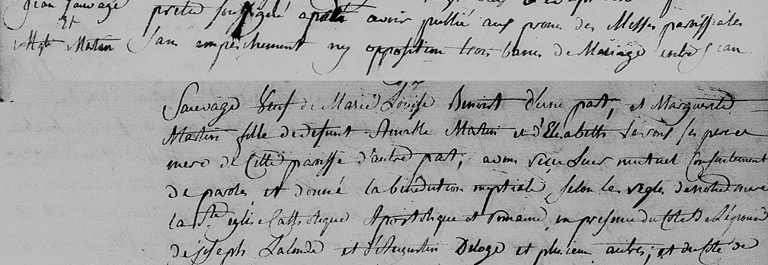 Jean Sauvage prêtre soussigné après avoir publié aux prones des Messes paroissiales
Et
Mgte Martin Sans empêchement ny opposition trois bancs de Mariage entre Jean
Sauvage Veuf de Marie Louise Benoist d'une part, et Marguerite
Martin fille de defunt Amable Martin et d'Elisabeth ses pere et
mere de Cette parroisse d'autre part, avons reçu Leur mutuel Consentement
de paroles et donné la bénédiction nuptiale, selon les regles de notre mere
la Ste église Catholique Apostolique et romaine, en presence du Coté de L'épouse
de joseph Lalonde et d'Augustin Deloge et plusieurs autres; et du Coté de